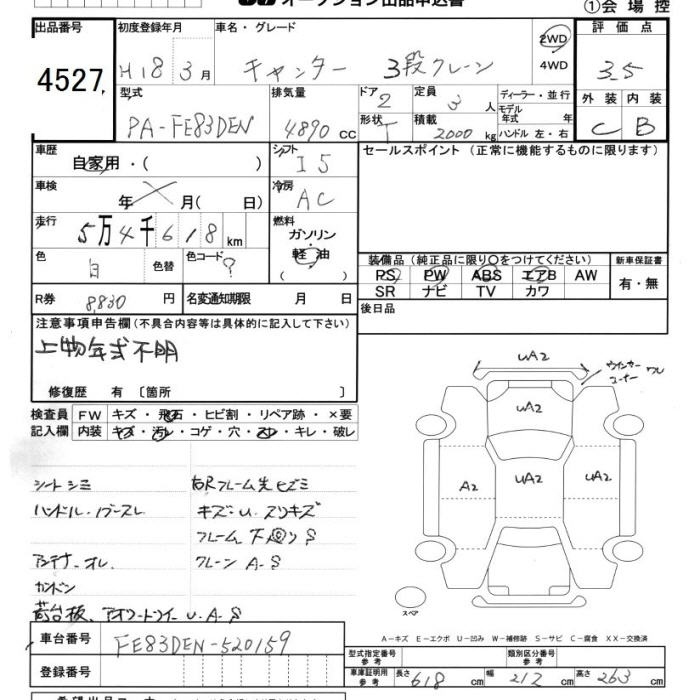 オークション出品申込書 ①会場控
出品番号 初度登録年月 車名・グレード 2WD 4WD 評価点
4527, H18 3月 キャンター 3段クレーン 3.5
型式 排気量 ドア 定員 ディーラー・並行 外装 内装
PA-FE83DEN 4890 cc 2 3人 モデル年式 年 C B
形状 T 積載 2000 kg ハンドル 左・右
車歴 自家用・( ) シフト I5 セールスポイント(正常に機能するものに限ります)
車検 年 月( 日) 冷房 AC
走行 5万4千618km 燃料 ガソリン 軽油
色 白 色替 色コード ? 装備品(純正品に限り○をつけてください) 新車保証書
PS PW ABS エアB AW 有・無
SR ナビ TV カワ
R券 8,830円 名変通知期限 月 日 後日品
注意事項申告欄(不具合内容等は具体的に記入して下さい)
上物年式不明
修復歴 有〔箇所 〕
検査員 FW キズ・飛石・ヒビ割・リペア跡・×要
記入欄 内装 キズ・汚レ・コゲ・穴・スレ・キレ・破レ
UA2 ウインカー コーナー ワレ
UA2
A2 UA2 UA2
シートシミ 右Rフレーム先ヒズミ
ハンドル・ キズ・U・スリキズ
フレーム下回りS
アンテナ・オレ クレーンA・S
荷台板、アオリ U・A・S
スペア
A-キズ E-エクボ U-凹み W-補修跡 S-サビ C-腐食 XX-交換済
車台番号 FE83DEN-520159
型式指定番号 参考 類別区分番号 参考
登録番号 車庫証明用 参考 長さ 618 cm 幅 212 cm 高さ 263 cm